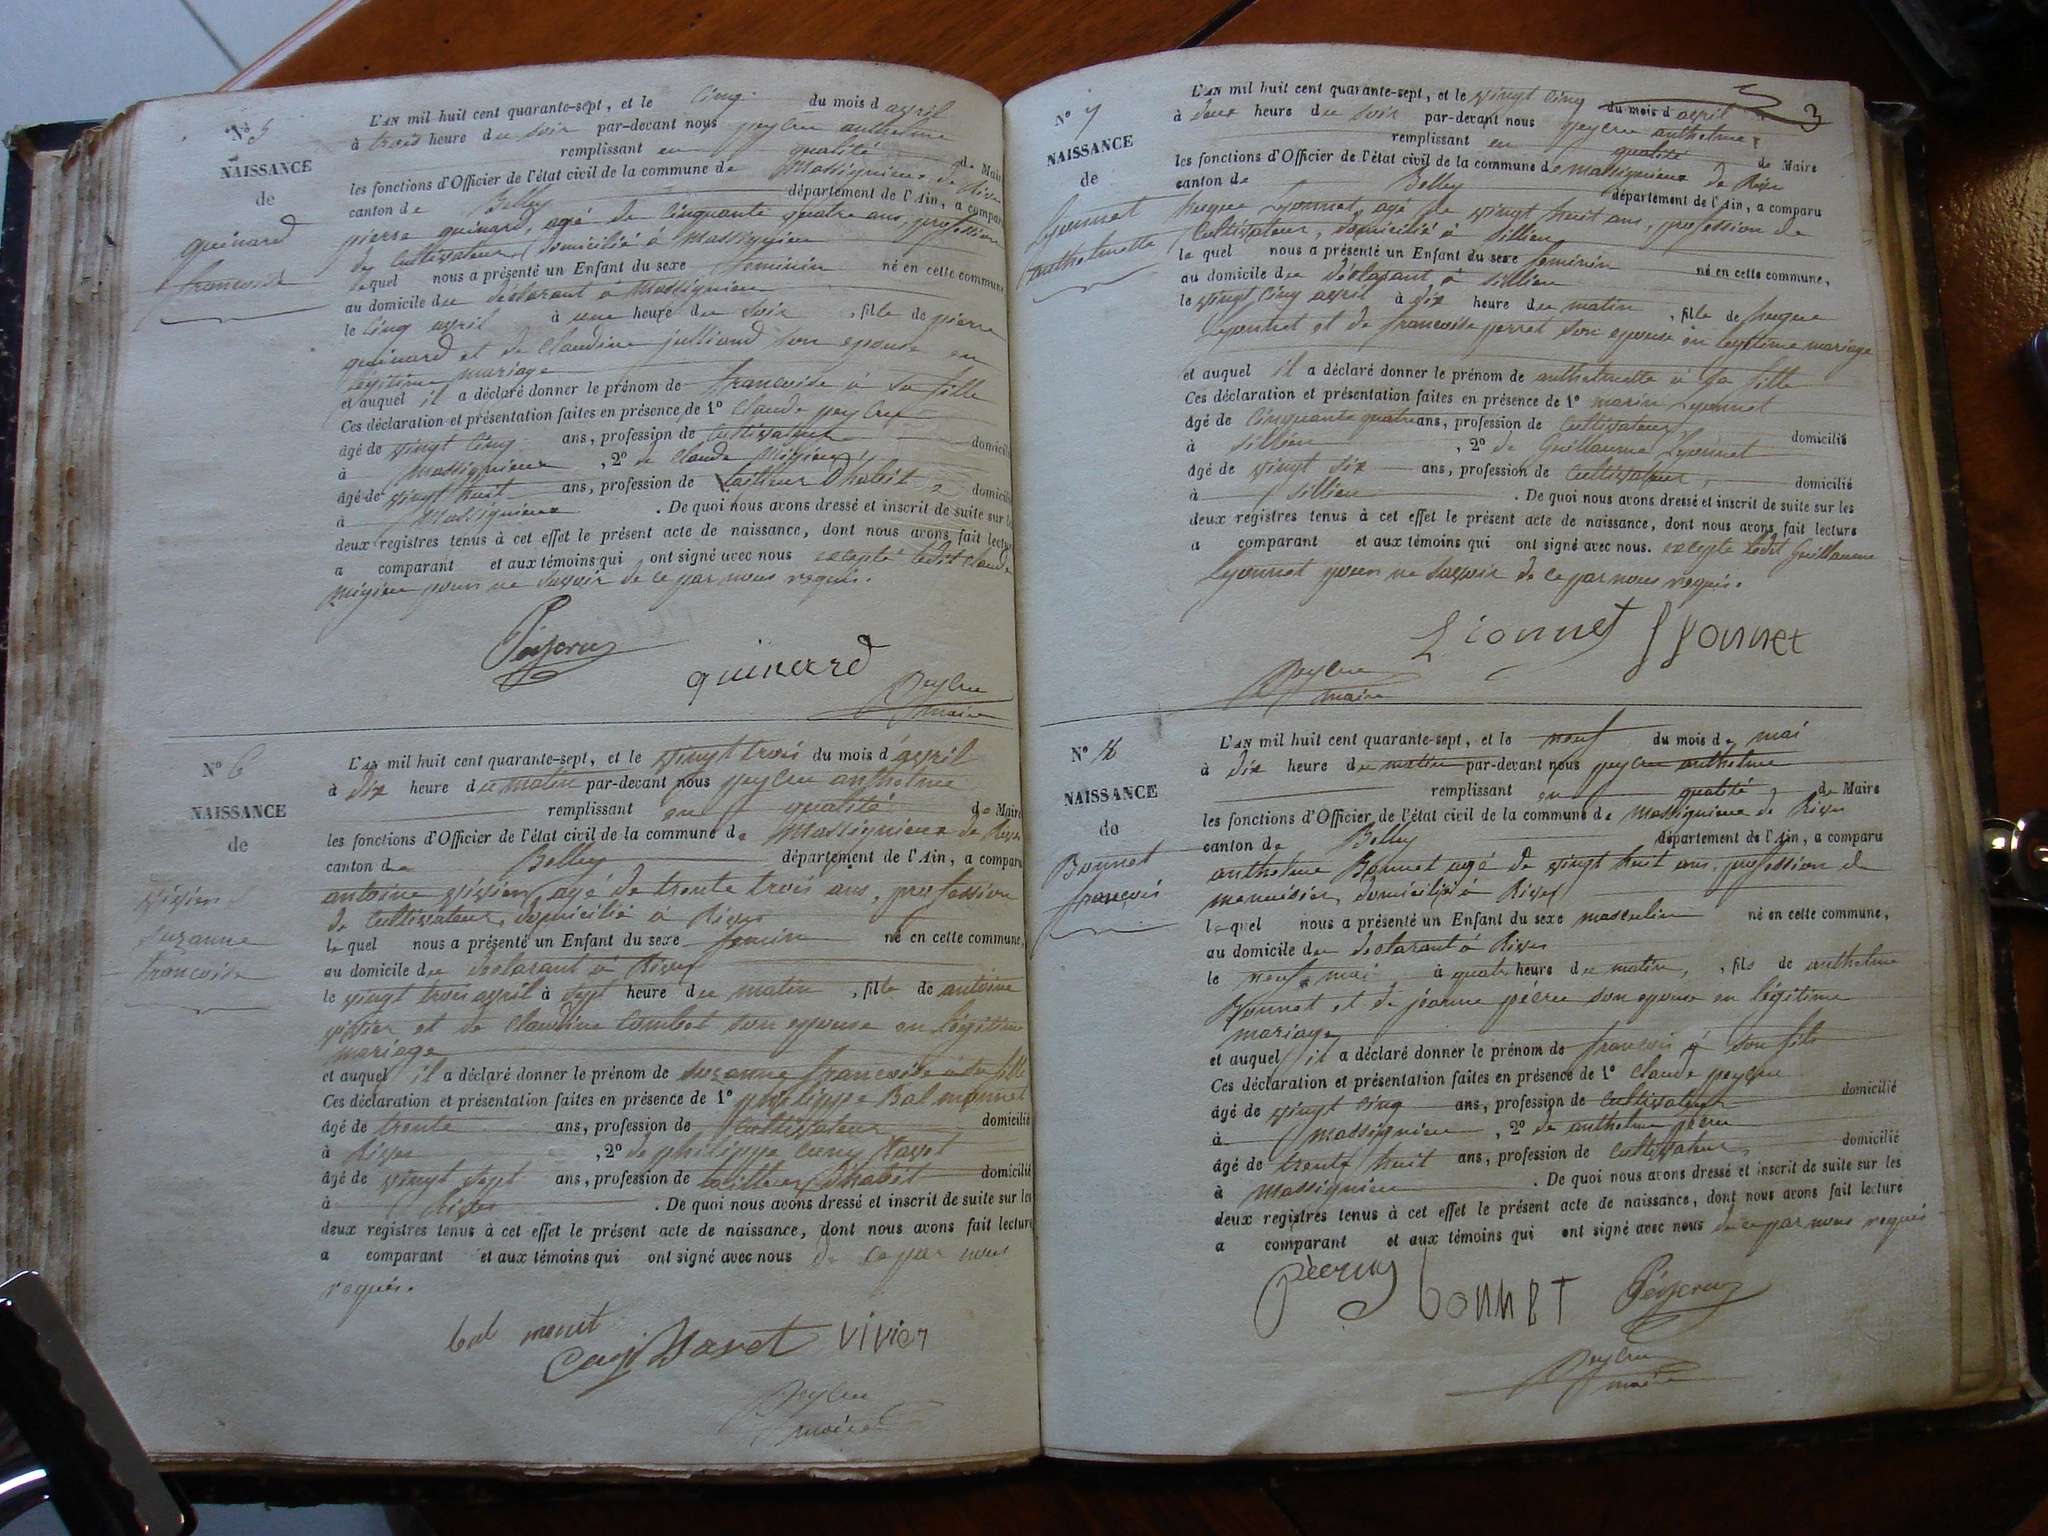 N° 5
NAISSANCE
de
guinard
francoise
L'AN mil huit cent quarante-sept, et le cinq du mois d avril
à trois heure du soir par-devant nous peycru anthelme
remplissant en qualité de Maire
les fonctions d'Officier de l'état civil de la commune de Massignieux de Rives
canton de Belley département de l'Ain, a comparu
pierre guinard, agé de cinquante quatre ans, profession
de cultivateur, domicilié à Massignieu
lequel nous a présenté un Enfant du sexe feminin né en cette commune
au domicile du déclarant à Massignieu
le cinq avril à une heure du soir, fille de pierre
guinard et de claudine julliand son epouse en
legitime mariage
et auquel il a déclaré donner le prénom de francoise à sa fille
Ces déclaration et présentation faites en présence de 1° claude peycru
âgé de vingt cinq ans, profession de cultivateur domicilié
à Massignieux, 2° de claude
âgé de vingt huit ans, profession de tailleur Dhabit domicilié
à Massignieux. De quoi nous avons dressé et inscrit de suite sur les
deux registres tenus à cet effet le présent acte de naissance, dont nous avons fait lecture
a comparant et aux témoins qui ont signé avec nous excepté ledit claude
pour ne savoir de ce par nous requis.
Péycru
guinard
Peycru
maire
N° 6
NAISSANCE
de
vivier
suzanne
francoise
L'AN mil huit cent quarante-sept, et le vingt trois du mois d avril
à dix heure du matin par-devant nous peycru anthelme
remplissant en qualité de Maire
les fonctions d'Officier de l'état civil de la commune de Massignieux de Rives
canton de Belley département de l'Ain, a comparu
antoine vivier, agé de trente trois ans, profession
de cultivateur, domicilié à Rives
lequel nous a présenté un Enfant du sexe feminin né en cette commune,
au domicile du declarant à Rives
le vingt trois avril à sept heure du matin, fille de antoine
vivier et de claudine combet son epouse en légitime
mariage
et auquel il a déclaré donner le prénom de suzanne francoise à sa fille
Ces déclaration et présentation faites en présence de 1° philippe Balmonnet
âgé de trente ans, profession de cultivateur domicilié
à Rives, 2° de philippe
âgé de vingt sept ans, profession de tailleur Dhabit domicilié
à Rives. De quoi nous avons dressé et inscrit de suite sur les
deux registres tenus à cet effet le présent acte de naissance, dont nous avons fait lecture
a comparant et aux témoins qui ont signé avec nous de ce par nous
requis.
bal monet
vivier
Peycru
maire
3
N° 7
NAISSANCE
de
Lyonnet
anthelmette
L'AN mil huit cent quarante-sept, et le vingt cinq du mois d avril
à deux heure du soir par-devant nous peycru anthelme
remplissant en qualité de Maire
les fonctions d'Officier de l'état civil de la commune de massignieux de Rives
canton de Belley département de l'Ain, a comparu
hugue Lyonnet, agé de vingt huit ans, profession de
cultivateur, domicilié à sillieu
lequel nous a présenté un Enfant du sexe feminin né en cette commune,
au domicile du déclarant à sillieu
le vingt cinq avril à six heure du matin, fille de hugue
Lyonnet et de francoise perret son epouse en legitime mariage
et auquel il a déclaré donner le prénom de anthelmette à sa fille
Ces déclaration et présentation faites en présence de 1° marin Lyonnet
âgé de cinquante quatre ans, profession de cultivateur domicilié
à sillieu, 2° de Guillaume Lyonnet
âgé de vingt six ans, profession de cultivateur, domicilié
à sillieu. De quoi nous avons dressé et inscrit de suite sur les
deux registres tenus à cet effet le présent acte de naissance, dont nous avons fait lecture
a comparant et aux témoins qui ont signé avec nous. excepte ledit Guillaume
Lyonnet pour ne savoir de ce par nous requis.
Lionnet Lyonnet
Peycru
maire
N° 8
NAISSANCE
de
Bonnet
françois
L'AN mil huit cent quarante-sept, et le neuf du mois de mai
à dix heure du matin par-devant nous peycru anthelme
remplissant en qualité de Maire
les fonctions d'Officier de l'état civil de la commune de Massignieux de Rives
canton de Belley département de l'Ain, a comparu
anthelme Bonnet agé de vingt huit ans, profession de
menuisier, domicilié à Rives
lequel nous a présenté un Enfant du sexe masculin né en cette commune,
au domicile du declarant à Rives
le neuf mai à quatre heure du matin, fils de anthelme
Bonnet et de jeanne pécru son epouse en légitime
mariage
et auquel il a déclaré donner le prénom de francois à son fils
Ces déclaration et présentation faites en présence de 1° claude peycru
âgé de vingt cinq ans, profession de cultivateur domicilié
à Massignieu, 2° de anthelme pécru
âgé de trente huit ans, profession de cultivateur, domicilié
à Massignieu. De quoi nous avons dressé et inscrit de suite sur les
deux registres tenus à cet effet le présent acte de naissance, dont nous avons fait lecture
a comparant et aux témoins qui ont signé avec nous de ce par nous requis
Pécruy bonnet Péycru
Peycru
maire